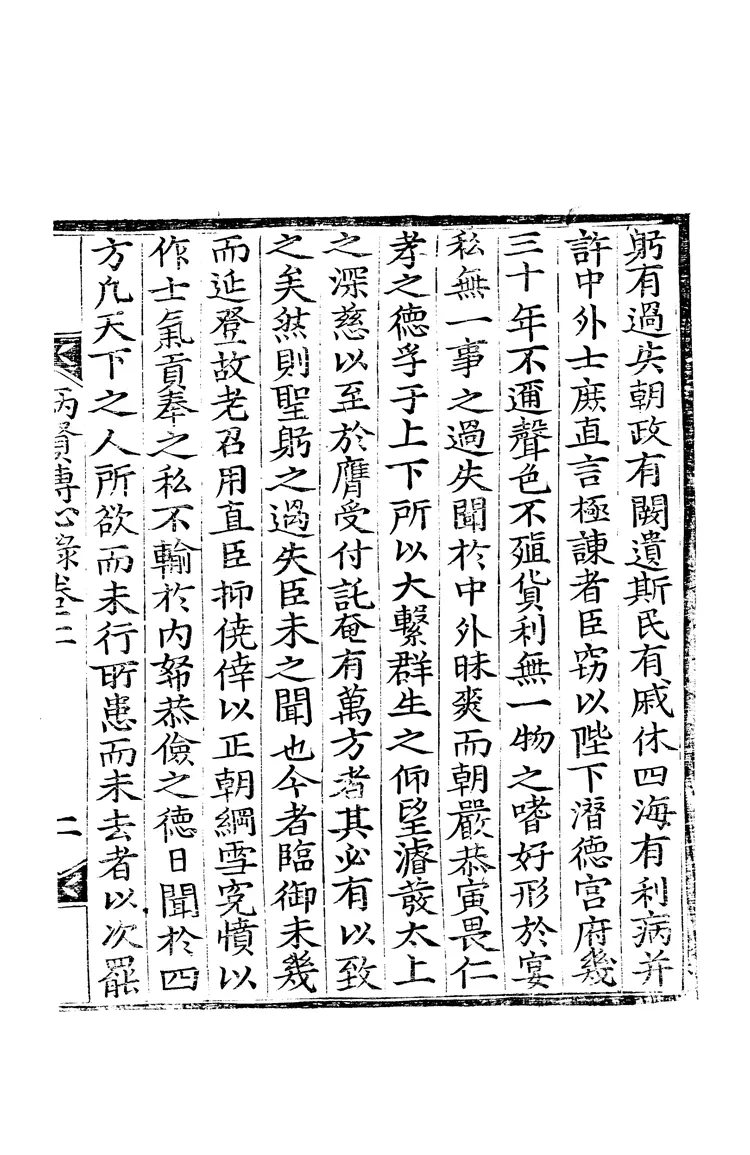 躬有過失朝政有闕遺斯民有戚休四海有利病并
許中外士庶直言極諫者臣窃以陛下潛德宫府幾
三十年不邇聲色不殖貨利無一物之嗜好形於宴
私無一事之過失聞於中外昧爽而朝嚴恭寅畏仁
孝之德孚于上下所以大繫群生之仰望濬發太上
之深慈以至於膺受付託奄有萬方者其必有以致
之矣然則聖躬之過失臣未之聞也今者臨御未幾
而延登故老召用直臣抑僥倖以正朝綱雪寃憤以
作士氣貢奉之私不輸於内帑恭儉之德日聞於四
方凢天下之人所欲而未行所患而未去者以次罷
两賢傳心錄卷二
二